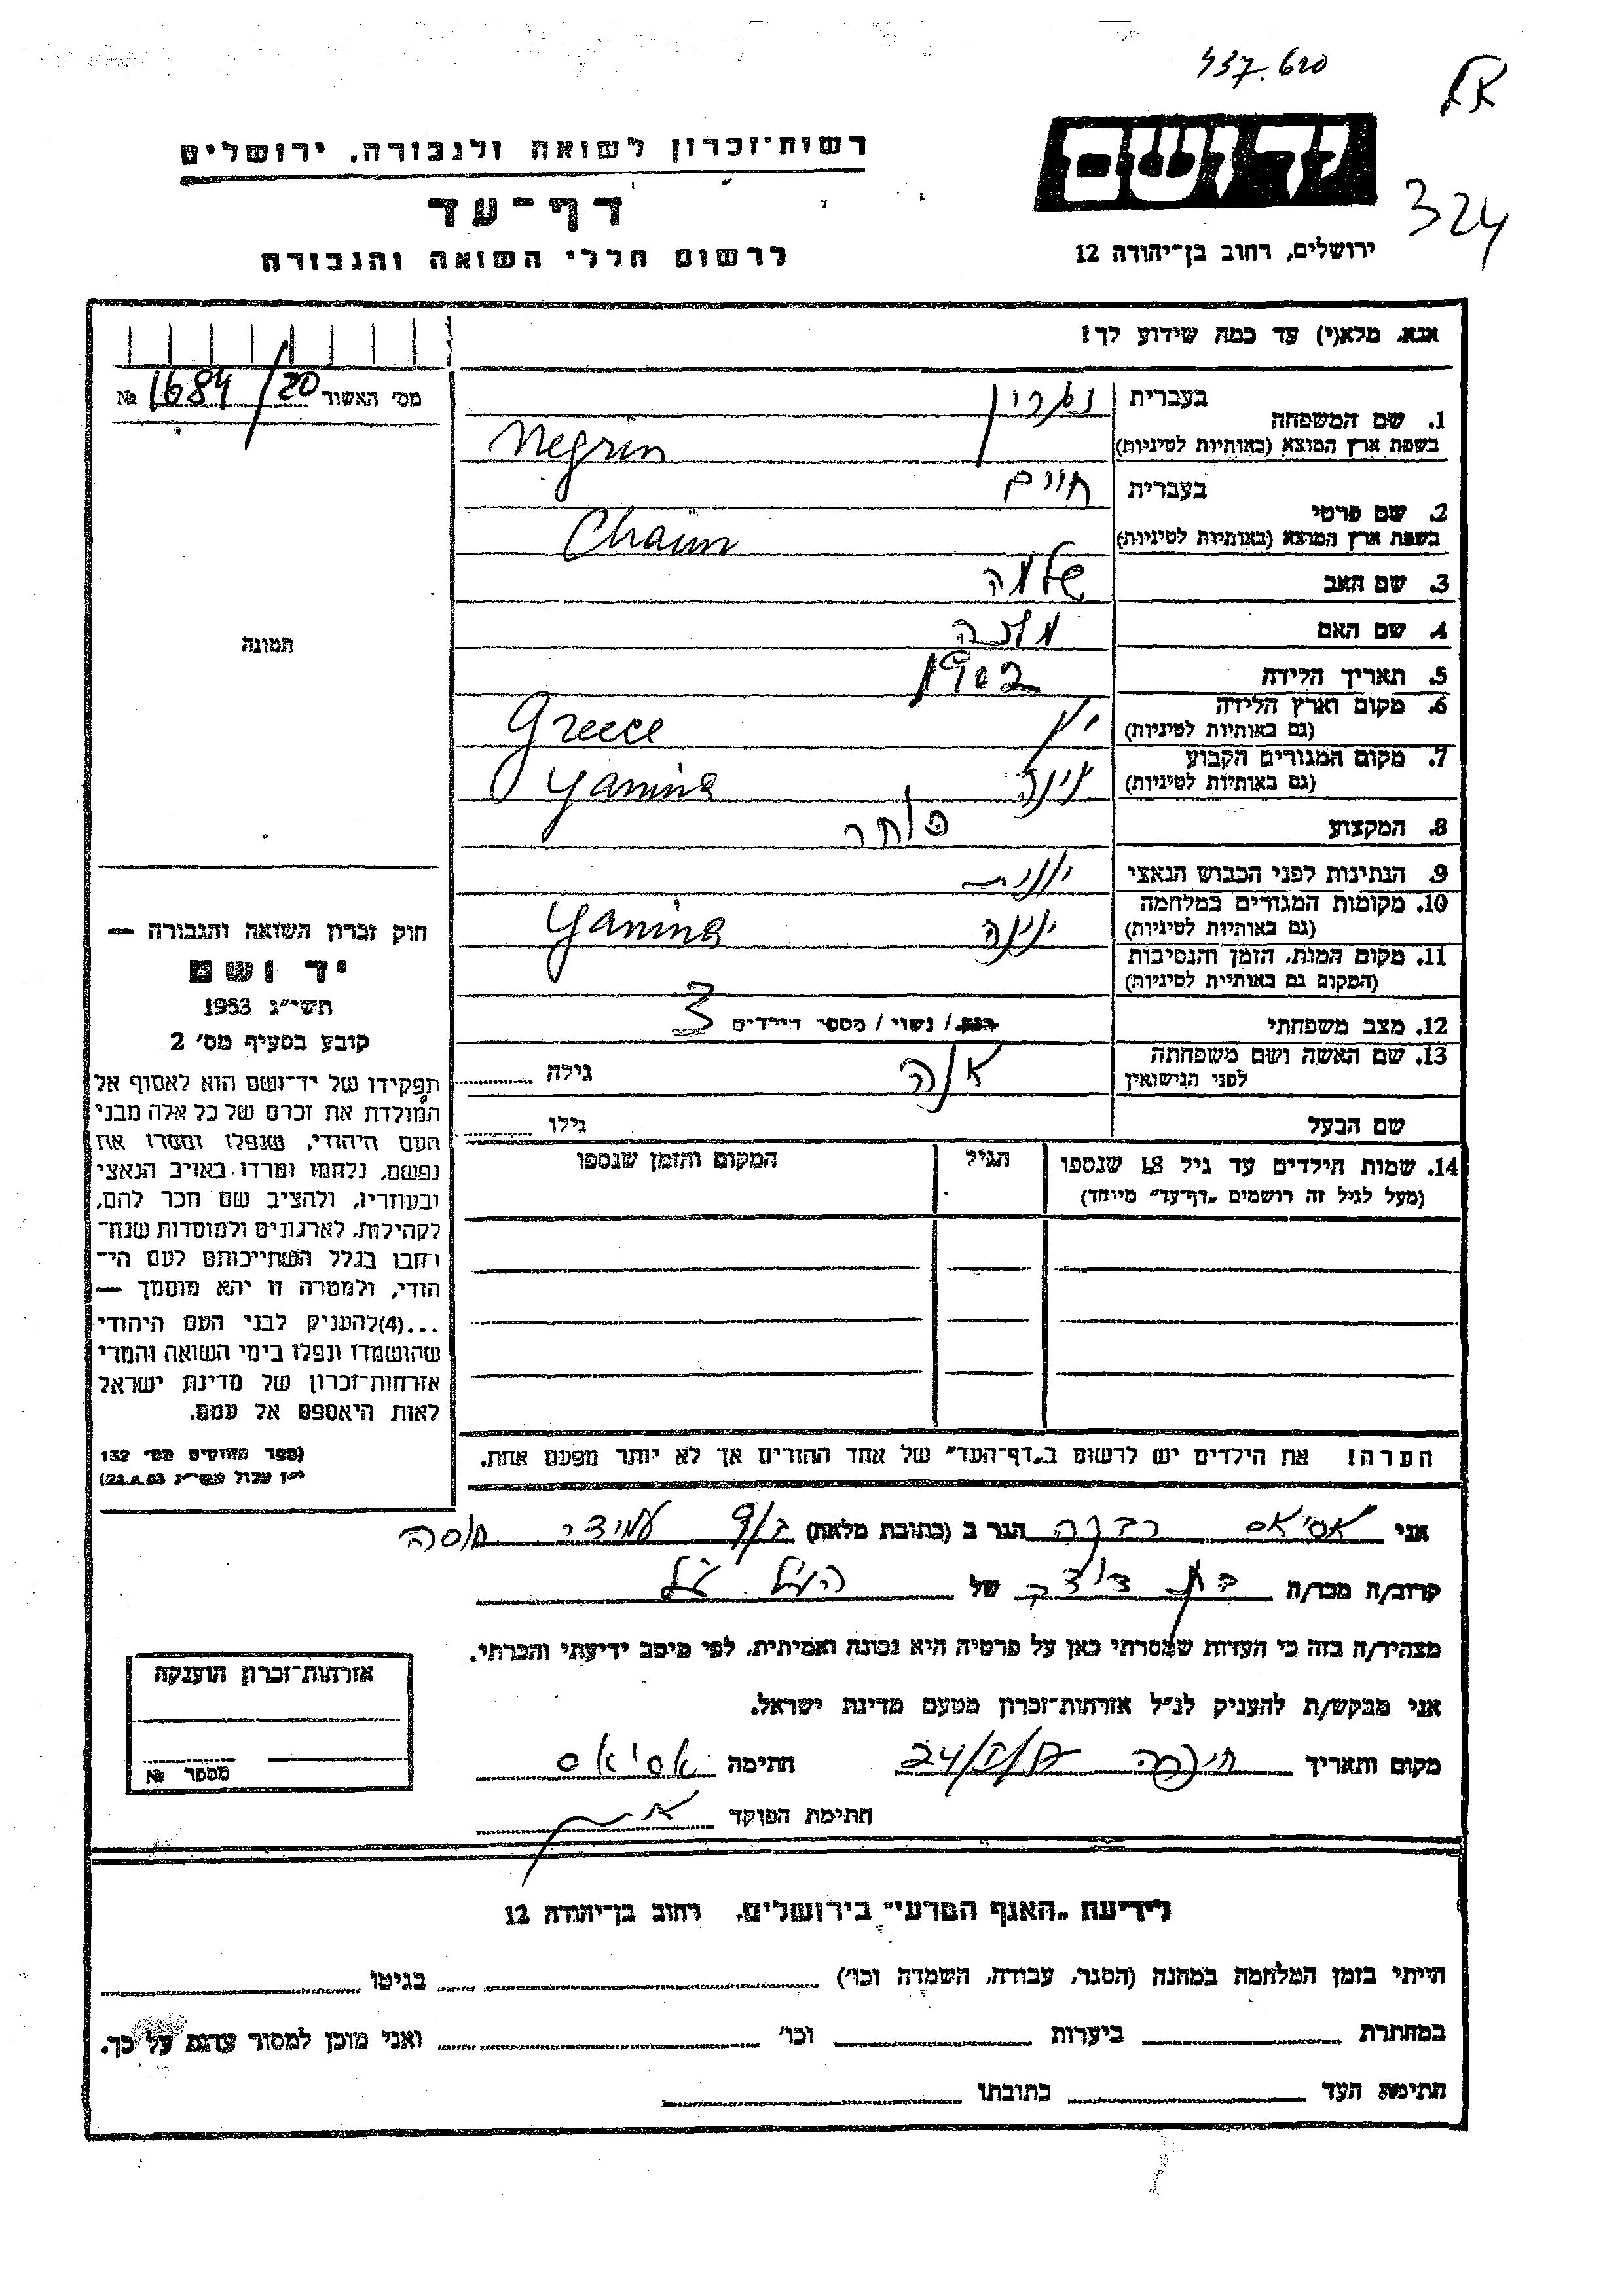 437.620
324
רשות־זכרון לשואה ולגבורה, ירושלים
יד ושם
דף־עד
ירושלים, רחוב בן־יהודה 12
לרשום חללי השואה והגבורה
אנא, מלא(י) עד כמה שידוע לך!
מס' האשור 1684/20 №
תמונה
1. שם המשפחה בעברית נגרין
בשפת ארץ המוצא (באותיות לטיניות) Negrin
2. שם פרטי בעברית חיים
בשפת ארץ המוצא (באותיות לטיניות) Chaim
3. שם האב שלמה
4. שם האם
5. תאריך הלידה 1902
6. מקום וארץ הלידה
(גם באותיות לטיניות) יון Greece
7. מקום המגורים הקבוע
(גם באותיות לטיניות) ינינה Yanina
8. המקצוע סוחר
9. הנתינות לפני הכבוש הנאצי יוונית
10. מקומות המגורים במלחמה
(גם באותיות לטיניות) ינינה Yanina
11. מקום המות, הזמן והנסיבות
(המקום גם באותיות לטיניות)
12. מצב משפחתי רווק / נשוי / מספר הילדים 3
13. שם האשה ושם משפחתה
לפני הנישואין אנה גילה
שם הבעל גילו
14. שמות הילדים עד גיל 18 שנספו הגיל המקום והזמן שנספו
(מעל לגיל זה רושמים „דף־עד" מיוחד)
חוק זכרון השואה והגבורה —
יד ושם
תשי"ג 1953
קובע בסעיף מס' 2
תפקידו של יד־ושם הוא לאסוף אל
המולדת את זכרם של כל אלה מבני
העם היהודי, שנפלו ומסרו את
נפשם, נלחמו ומרדו באויב הנאצי
ובעוזריו, ולהציב שם וזכר להם,
לקהילות, לארגונים ולמוסדות שנח־
רבו בגלל השתייכותם לעם הי־
הודי, ולמטרה זו יהא מוסמך —
...(4)להעניק לבני העם היהודי
שהושמדו ונפלו בימי השואה והמרי
אזרחות־זכרון של מדינת ישראל
לאות היאספם אל עמם.
(ספר החוקים מס' 132
י"ז אלול תשי"ג 28.8.53)
הערה! את הילדים יש לרשום ב„דף־העד" של אחד ההורים אך לא יותר מפעם אחת.
אני אסיאס רבקה הגר ב (כתובת מלאה) עמידר חוסה
קרוב/ה מכר/ה בת דודה של הנ"ל
מצהיר/ה בזה כי העדות שמסרתי כאן על פרטיה היא נכונה ואמיתית, לפי מיטב ידיעתי והכרתי.
אני מבקש/ת להעניק לנ"ל אזרחות־זכרון מטעם מדינת ישראל.
מקום ותאריך חיפה חתימה אסיאס
חתימת הפוקד
אזרחות־זכרון הוענקה
מספר №
לידיעת „האגף המדעי" בירושלים, רחוב בן־יהודה 12
הייתי בזמן המלחמה במחנה (הסגר, עבודה, השמדה וכו') בגיטו
במחתרת ביערות וכו' ואני מוכן למסור עדות על כך.
חתימת העד כתובתו